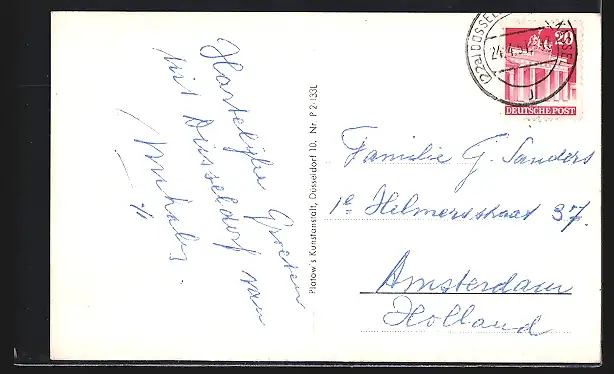 Hartelijke Groeten
uit Düsseldorf van
Platow's Kunstanstalt, Düsseldorf 10, Nr. P 2-133L
20
DEUTSCHE POST
(22a) DÜSSEL
24.4.51
Familie G. Sanders
1e Helmersstraat 37.
Amsterdam
Holland